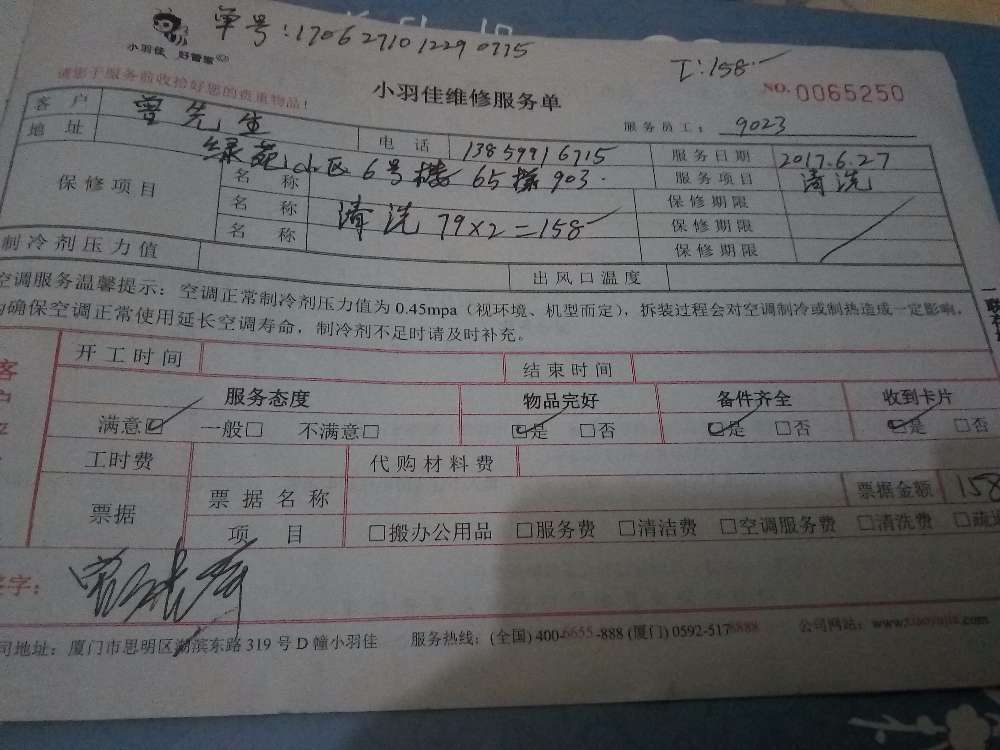 单号:1706271012290775
工:158
小羽佳 好管家
请您于服务前收拾好您的贵重物品!
小羽佳维修服务单
NO.0065250
服务员工: 9023
客户 曾先生 电话 13859916715 服务日期 2017.6.27
地址 绿苑小区6号楼65梯903. 服务项目 清洗
保修项目 名称 保修期限
名称 清洗 79×2=158 保修期限
名称 保修期限
制冷剂压力值 出风口温度
空调服务温馨提示:空调正常制冷剂压力值为0.45mpa(视环境、机型而定),拆装过程会对空调制冷或制热造成一定影响,
为确保空调正常使用延长空调寿命,制冷剂不足时请及时补充。
开工时间 结束时间
服务态度 物品完好 备件齐全 收到卡片
满意☑ 一般□ 不满意□ ☑是 □否 ☑是 □否 ☑是 □否
工时费 代购材料费
票据 票据名称 票据金额 158
项目 □搬办公用品 □服务费 □清洁费 □空调服务费 □清洗费
签字:
司地址:厦门市思明区湖滨东路319号D幢小羽佳 服务热线:(全国)400-6655-888(厦门)0592-5178888 公司网站:www.xiaoyujia.com